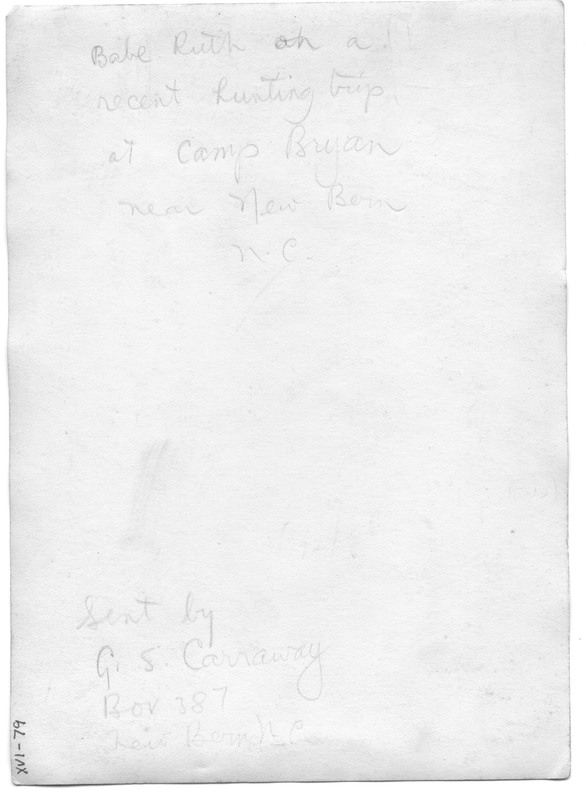 Babe Ruth on a
recent hunting trip
at Camp Bryan
near New Bern
N.C.
Sent by
G. S. Carraway
Box 387
New Bern, N.C.
XVI-79